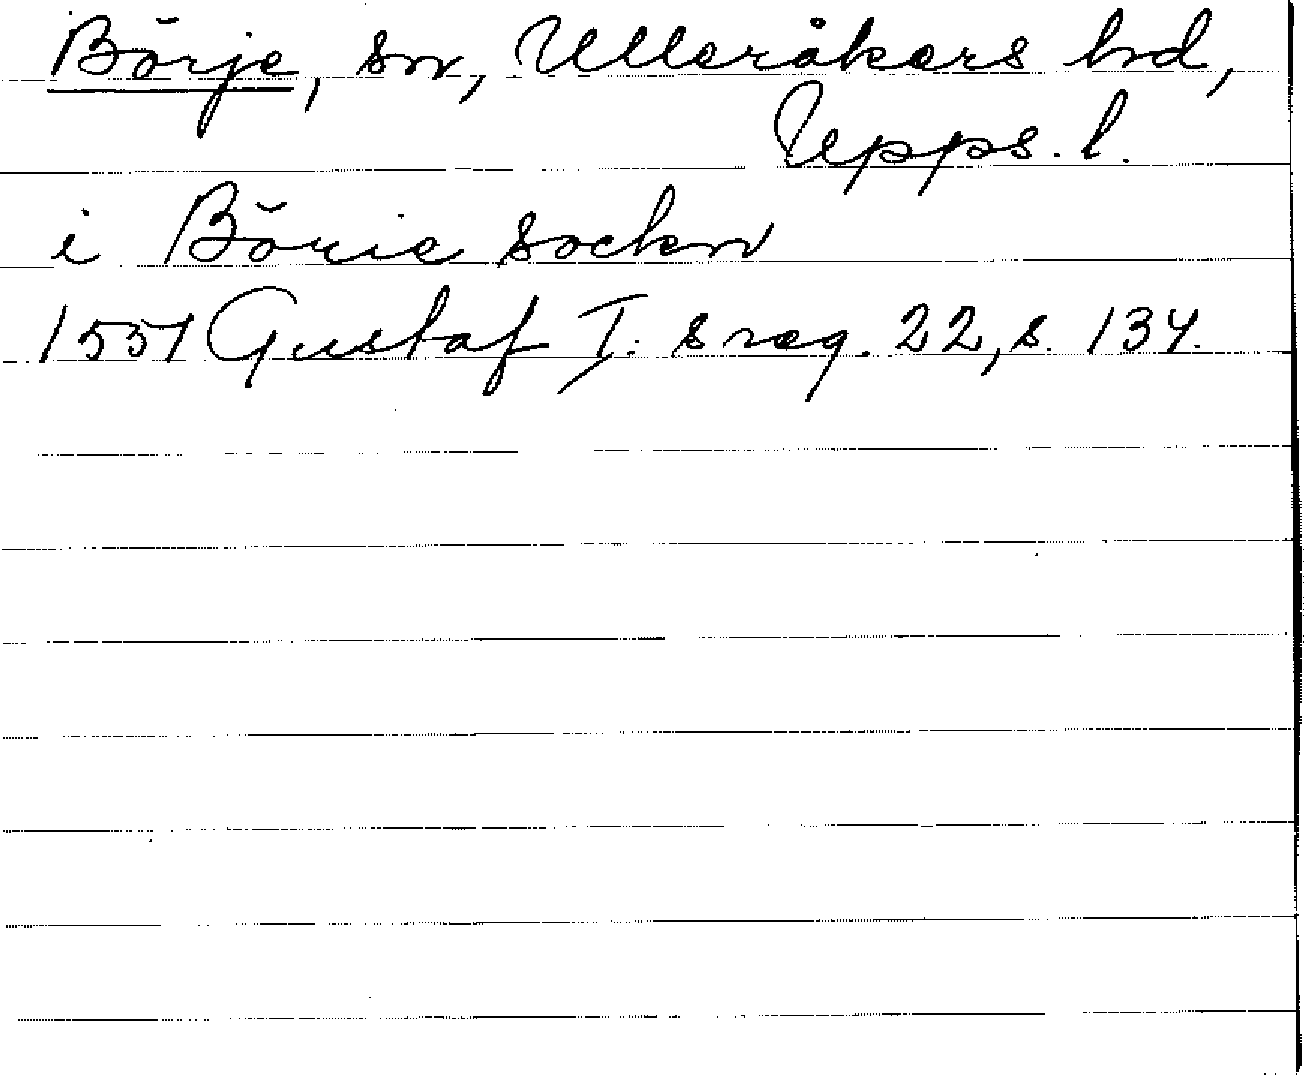 Börje, sn, Ulleråkers hd,
Upps. l.
i Börie sockn
1551 Gustaf I:s reg. 22, s. 134.